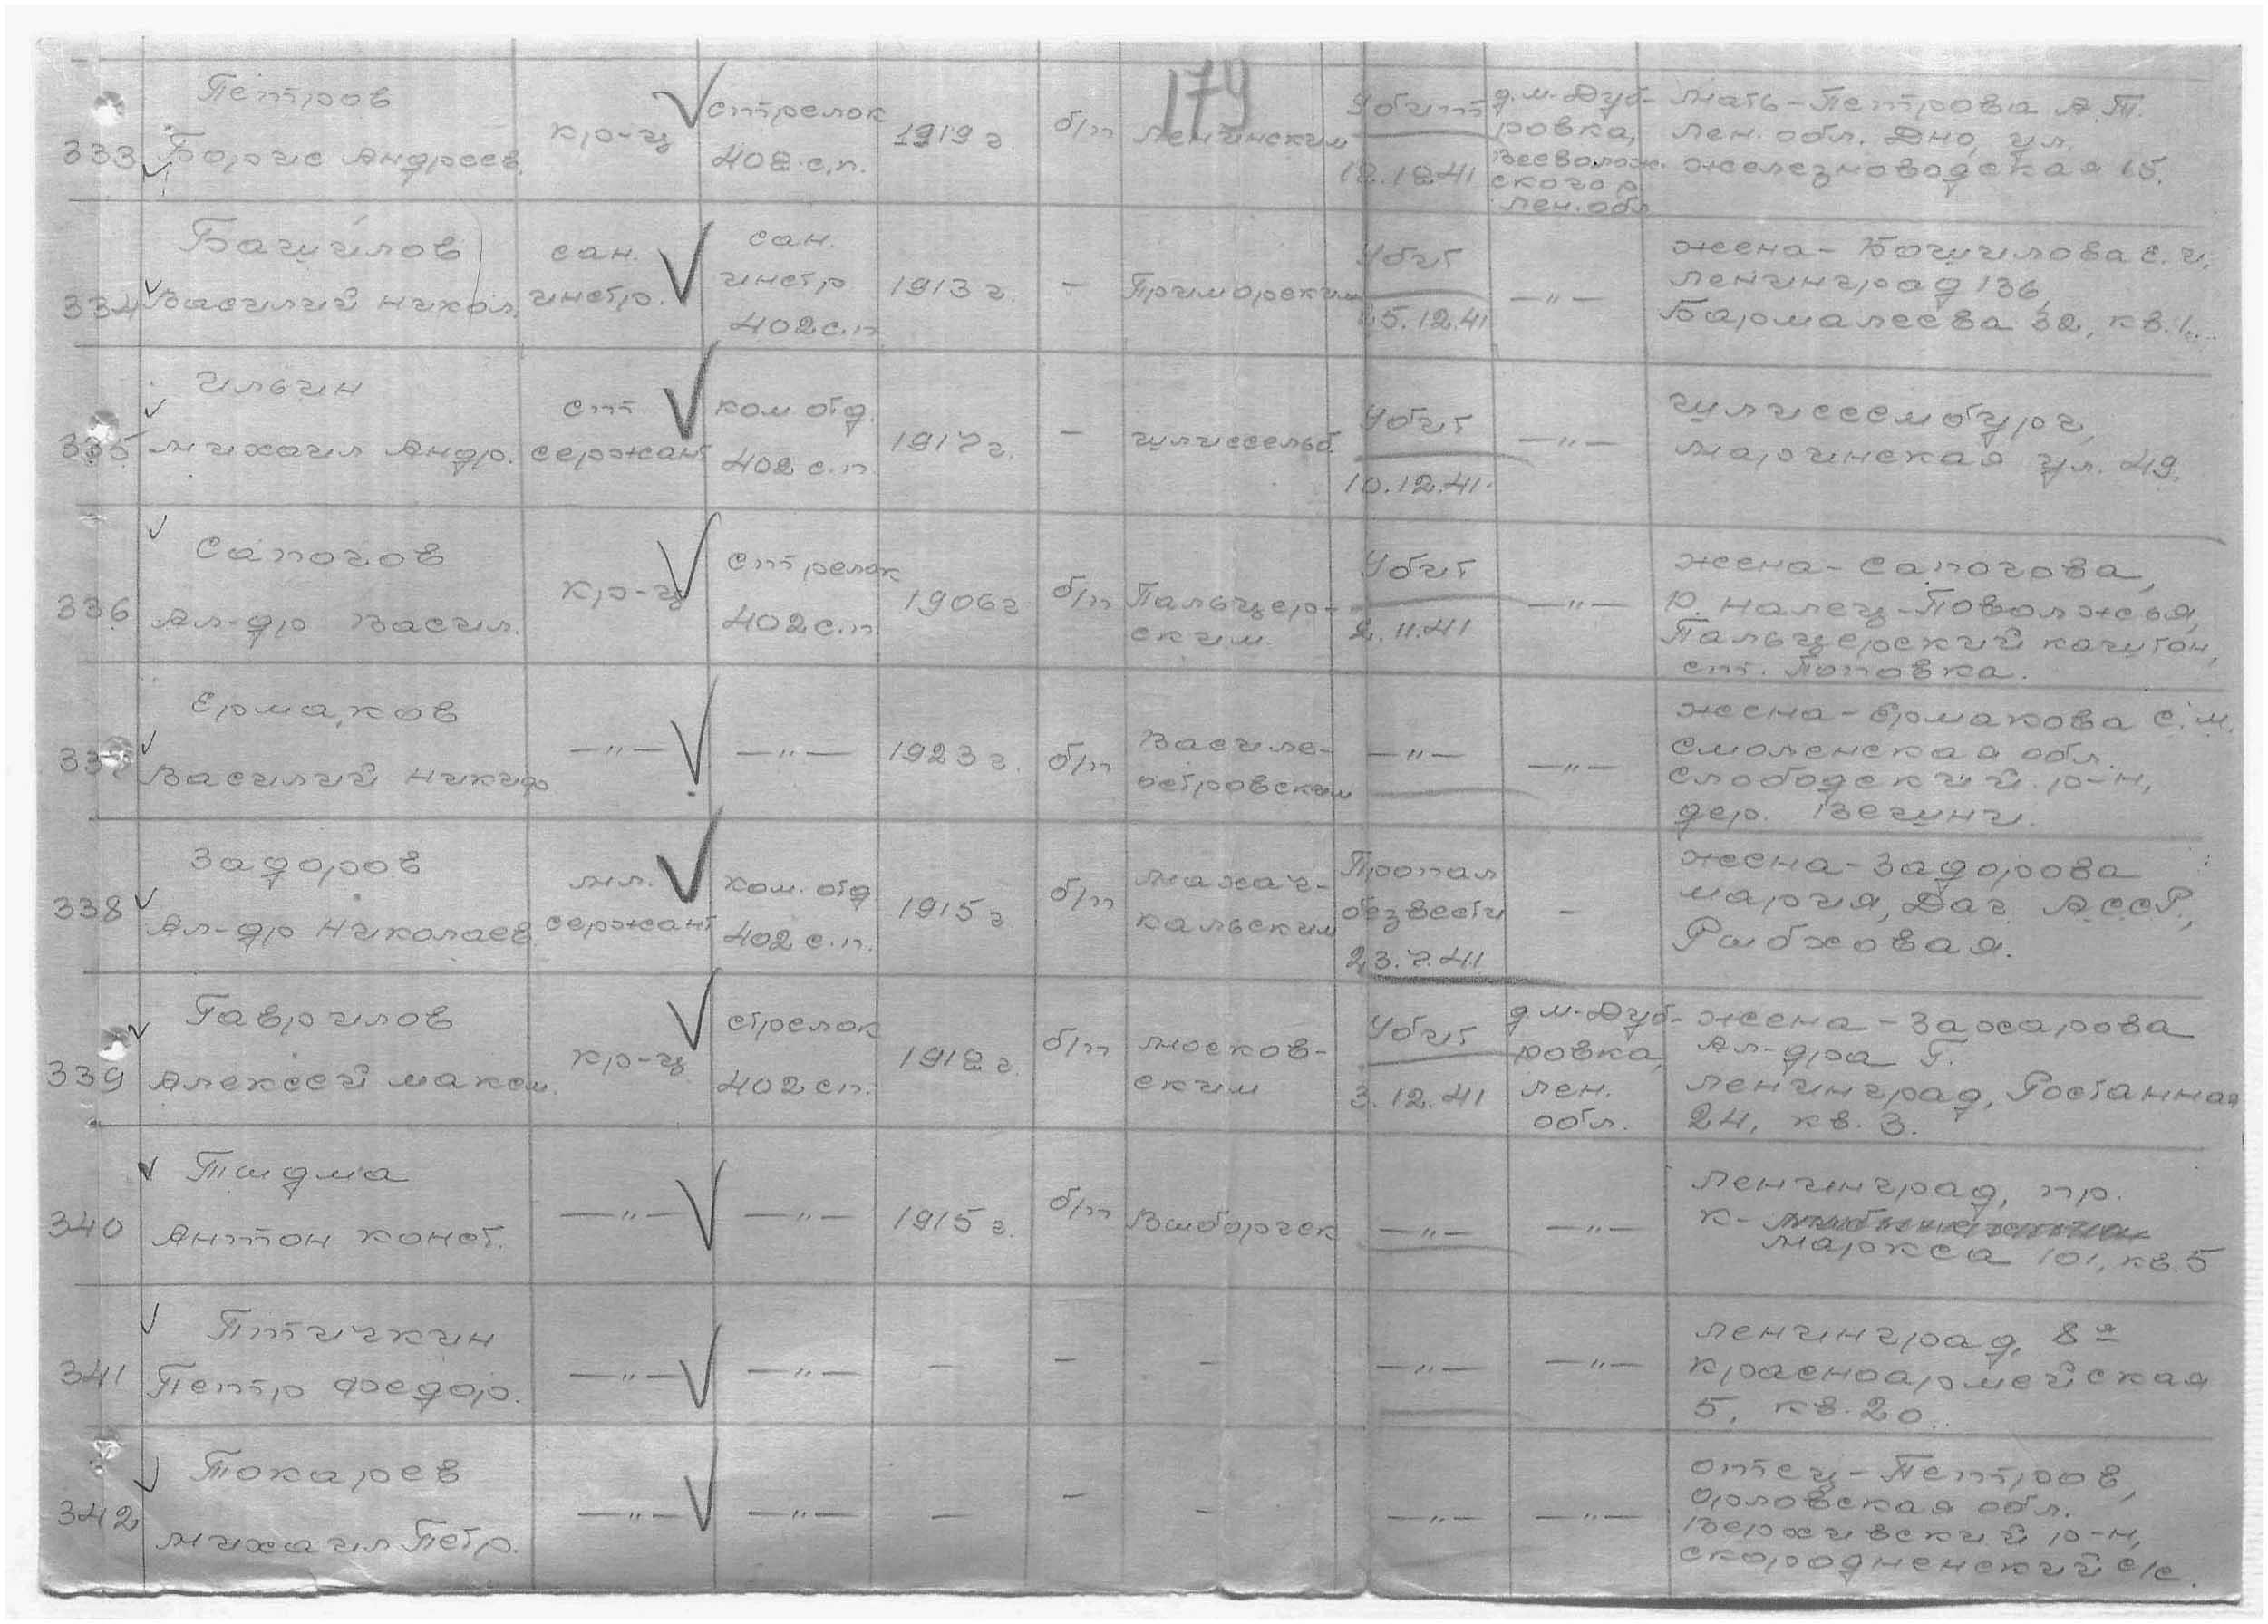 179
Петров
333 Борис Андреев.
кр-ц
стрелок
402 с.п.
1919 г.
б/п
Ленинским
Убит
12.12.41
д. м-Дуб-
ровка,
Всеволож.
ского р.
Лен. обл
Мать-Петрова А.Т.
Лен. обл. Дно, ул.
Железноводская 15.
Башилов
334 Василий Никол.
сан.
инстр.
сан.
инстр
402 с.п
1913 г.
-
Приморским
Убит
5.12.41
-"-
жена-Башилова С.И.
Ленинград 136,
Бармалеева 32, кв. 1.
Ильин
335 Михаил Андр.
ст
сержант
ком отд.
402 с.п.
1917 г.
-
Шлиссельб.
Убит
10.12.41.
-"-
Шлиссембург,
Мариинская ул. 49.
Сапогов
336 Ал-др Васил.
кр-ц
стрелок
402 с.п.
1906 г
б/п
Пальцер-
ским.
Убит
2.11.41
-"-
жена-Сапогова,
р. Налец-Поволжья,
Пальцерский каштон,
ст. Поповка.
Ермаков
337 Василий Никиф
-"-
-"-
1923 г.
б/п
Василе-
островским
-"-
-"-
жена-Ермакова С.М.
Смоленская обл.
Слободский р-н,
дер. Вешни.
Задоров
338 Ал-др Николаев
мл.
сержант
ком. отд
402 с.п.
1915 г
б/п
Махач-
кальским
Пропал
безвести
23.7.41
-
жена-Задорова
Мария, Даг. АССР,
Рыбховая.
Гаврилов
339 Алексей Максим.
кр-ц
стрелок
402 сп.
1912 г.
б/п
Москов-
ским
Убит
3.12.41
д м-Дуб-
ровка,
Лен.
обл.
жена-Захарова
Ал-дра Г.
Ленинград, Растанная
24, кв. 3.
Тыдма
340 Антон Конст.
-"-
-"-
1915 г.
б/п
Выборгск
-"-
-"-
Ленинград, пр.
К-
Маркса 101, кв. 5
Птичкин
341 Петр Федор.
-"-
-"-
-
-
-
-"-
-"-
Ленинград, 8я
Красноармейская
5, кв. 20.
Токарев
342 Михаил Петр.
-"-
-"-
-
-
-
-"-
-"-
отец-Петров,
Орловская обл.
Верховский р-н,
Скородненский с/с.